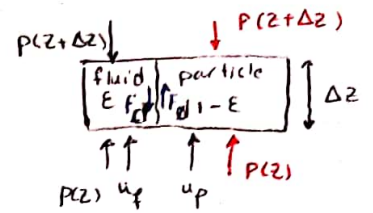 P(Z+ΔZ)
P(Z+ΔZ)
fluid particle
ε Fd Fd 1-ε
ΔZ
P(Z) uf up P(Z)